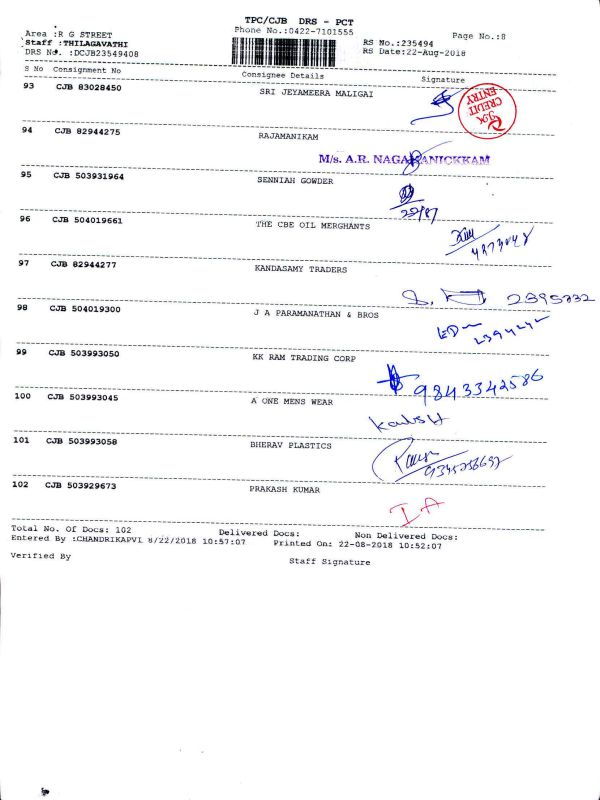 TPC/CJB DRS - PCT
Area :R G STREET Phone No.:0422-7101555 Page No.:8
Staff :THILAGAVATHI RS No.:235494
DRS No. :DCJB23549408 RS Date:22-Aug-2018
S No Consignment No Consignee Details Signature
93 CJB 83028450 SRI JEYAMEERA MALIGAI
CREDIT
ENTRY
94 CJB 82944275 RAJAMANIKAM
M/s. A.R. NAGAMANICKKAM
95 CJB 503931964 SENNIAH GOWDER
96 CJB 504019661 THE CBE OIL MERGHANTS
97 CJB 82944277 KANDASAMY TRADERS
98 CJB 504019300 J A PARAMANATHAN & BROS
99 CJB 503993050 KK RAM TRADING CORP
9843342586
100 CJB 503993045 A ONE MENS WEAR
101 CJB 503993058 BHERAV PLASTICS
102 CJB 503929673 PRAKASH KUMAR
IA
Total No. Of Docs: 102 Delivered Docs: Non Delivered Docs:
Entered By :CHANDRIKAPVI 8/22/2018 10:57:07 Printed On: 22-08-2018 10:52:07
Verified By Staff Signature